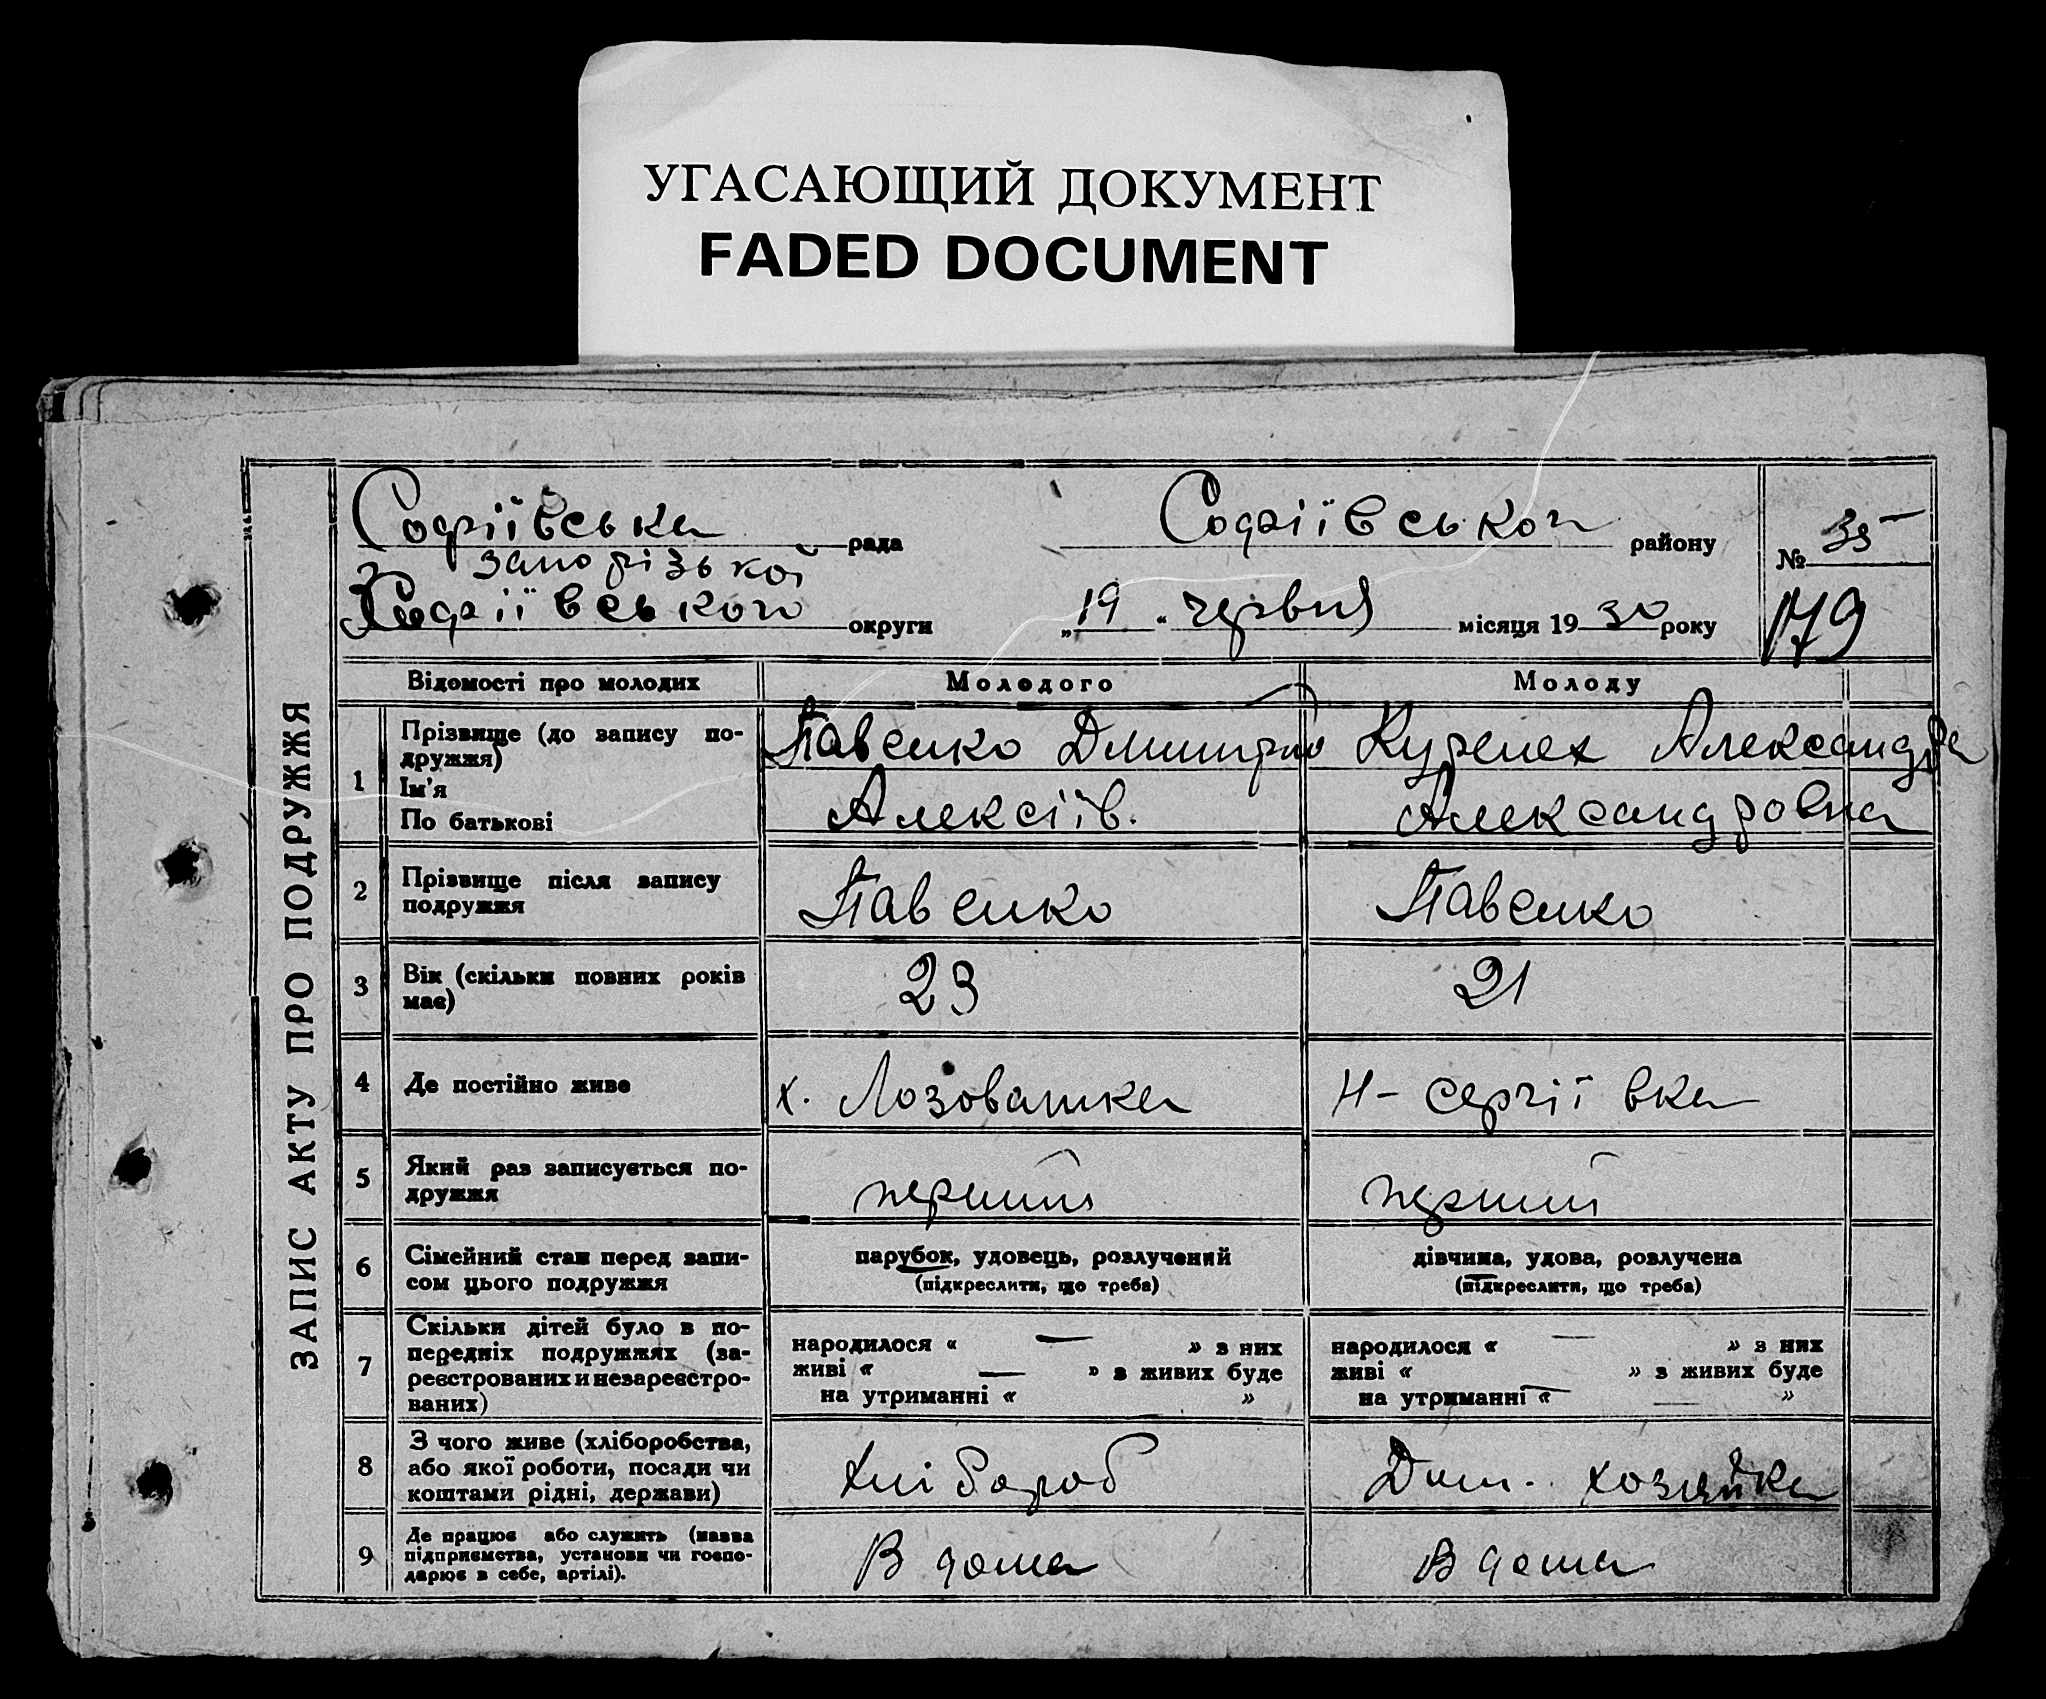 УГАСАЮЩИЙ ДОКУМЕНТ
FADED DOCUMENT
ЗАПИС АКТУ ПРО ПОДРУЖЖЯ
Софіївська рада
Софіївського району
№ 35
запорізької
Софіївського округи
„19“ червня місяця 1930 року
179
Відомості про молодих
Молодого
Молоду
1
Прізвище (до запису по-
дружжя)
Ім'я
По батькові
Павенко Дмитро
Алексіїв.
Курепех Александра
Александровна
2
Прізвище після запису
подружжя
Павенко
Павенко
3
Вік (скільки повних років
має)
23
21
4
Де постійно живе
х. Лозоватка
Н-Сергіївка
5
Який раз записується по-
дружжя
перший
перший
6
Сімейний стан перед запи-
сом цього подружжя
парубок, удовець, розлучений
(підкреслити, що треба)
дівчина, удова, розлучена
(підкреслити, що треба)
7
Скільки дітей було в по-
передніх подружжях (за-
реєстрованих и незареєстро-
ваних)
народилося « — » з них
живі « — » з живих буде
на утриманні « »
народилося « — » з них
живі « » з живих буде
на утриманні « — »
8
З чого живе (хліборобства,
або якої роботи, посади чи
коштами рідні, держави)
Хлібороб
Дом. хозяйка
9
Де працює або служить (назва
підприємства, установи чи госпо-
дарює в себе, артілі).
В дома
В дома